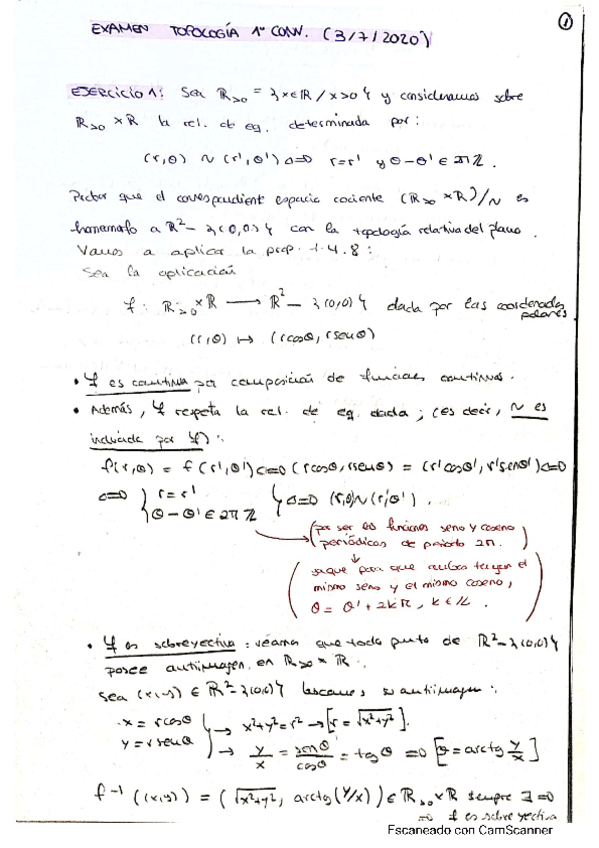 1
EXAMEN TOPOLOGÍA 1ª CONV. (3/7/2020)
EJERCICIO 1: Sea ℝ>0 = {x∈ℝ / x>0} y consideramos sobre
ℝ>0 × ℝ la rel. de eq. determinada por:
(r,θ) ~ (r',θ') ⇔ r=r' y θ-θ' ∈ 2πℤ.
Probar que el correspondiente espacio cociente (ℝ>0 × ℝ)/~ es
homeomorfo a ℝ² - {(0,0)} con la topología relativa del plano.
Vamos a aplicar la prop. 1.4.8:
Sea la aplicación
f: ℝ>0 × ℝ ⟶ ℝ² - {(0,0)} dada por las coordenadas
polares
(r,θ) ↦ (rcosθ, rsenθ)
• f es continua por composición de funciones continuas.
• Además, f respeta la rel. de eq. dada; (es decir, ~ es
inducida por f):
f(r,θ) = f(r',θ') ⇔ (rcosθ, rsenθ) = (r'cosθ', r'senθ') ⇔
⇔ { r=r'
θ-θ' ∈ 2πℤ } ⇔ (r,θ)~(r',θ').
(por ser las funciones seno y coseno
periódicas de periodo 2π.
↓
(ya que para que ambos tengan el
mismo seno y el mismo coseno,
θ = θ' + 2kπ, k∈ℤ.)
• f es sobreyectiva: veamos que todo punto de ℝ²-{(0,0)}
posee antiimagen en ℝ>0 × ℝ.
Sea (x,y) ∈ ℝ²-{(0,0)} buscamos su antiimagen:
x = rcosθ
y = rsenθ } → x²+y²=r² → [r = √x²+y²].
→ y/x = senθ/cosθ = tgθ ⇒ [θ = arctg y/x]
f⁻¹((x,y)) = (√x²+y², arctg(y/x)) ∈ ℝ>0 × ℝ siempre ∃ ⇒
⇒ f es sobreyectiva
Escaneado con CamScanner